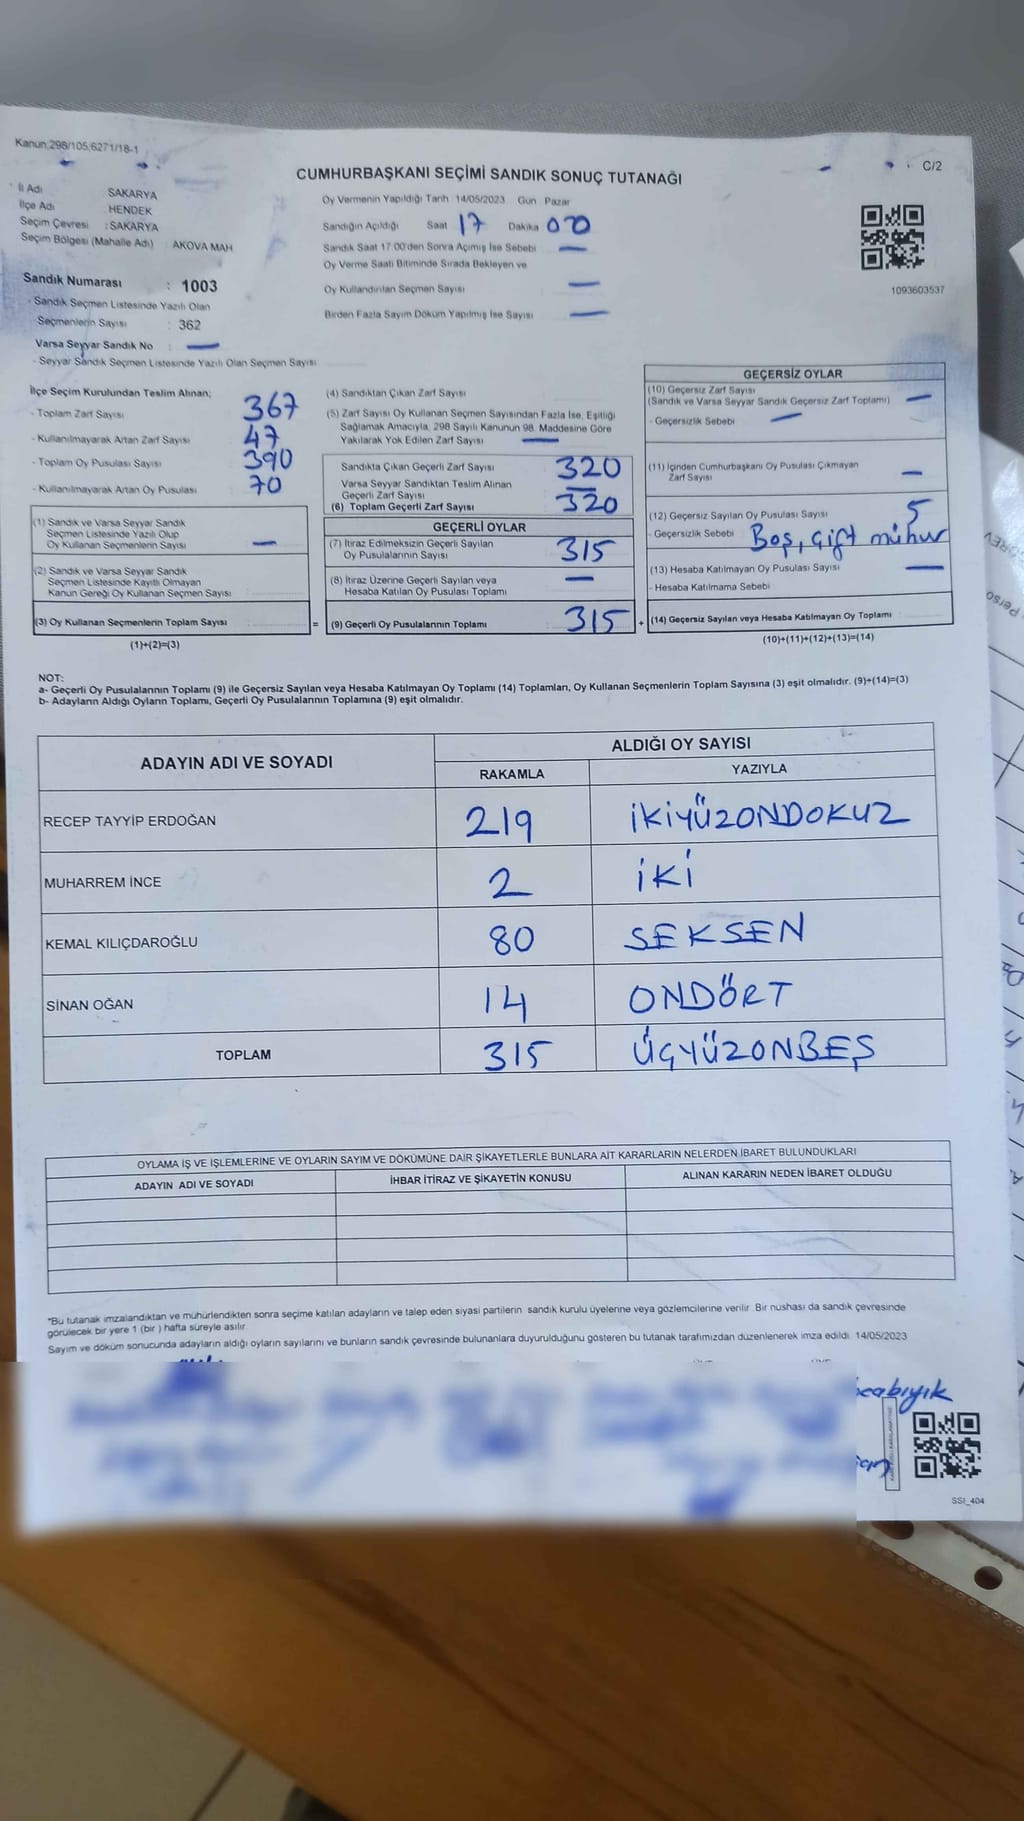 Kanun:298/105,6271/18-1
C/2
CUMHURBAŞKANI SEÇİMİ SANDIK SONUÇ TUTANAĞI
İl Adı SAKARYA
İlçe Adı HENDEK
Seçim Çevresi : SAKARYA
Seçim Bölgesi (Mahalle Adı) : AKOVA MAH
Sandık Numarası : 1003
- Sandık Seçmen Listesinde Yazılı Olan
Seçmenlerin Sayısı : 362
Varsa Seyyar Sandık No : —
- Seyyar Sandık Seçmen Listesinde Yazılı Olan Seçmen Sayısı
Oy Vermenin Yapıldığı Tarih 14/05/2023 Gün Pazar
Sandığın Açıldığı Saat 17 Dakika 00
Sandık Saat 17:00'den Sonra Açımış İse Sebebi —
Oy Verme Saati Bitiminde Sırada Bekleyen ve
Oy Kullandırılan Seçmen Sayısı —
Birden Fazla Sayım Döküm Yapılmış İse Sayısı —
1093603537
İlçe Seçim Kurulundan Teslim Alınan;
- Toplam Zarf Sayısı 367
- Kullanılmayarak Artan Zarf Sayısı 47
- Toplam Oy Pusulası Sayısı 390
- Kullanılmayarak Artan Oy Pusulası 70
(1) Sandık ve Varsa Seyyar Sandık
Seçmen Listesinde Yazılı Olup
Oy Kullanan Seçmenlerin Sayısı —
(2) Sandık ve Varsa Seyyar Sandık
Seçmen Listesinde Kayıtlı Olmayan
Kanun Gereği Oy Kullanan Seçmen Sayısı
(3) Oy Kullanan Seçmenlerin Toplam Sayısı =
(1)+(2)=(3)
(4) Sandıktan Çıkan Zarf Sayısı
(5) Zarf Sayısı Oy Kullanan Seçmen Sayısından Fazla İse, Eşitliği
Sağlamak Amacıyla, 298 Sayılı Kanunun 98. Maddesine Göre
Yakılarak Yok Edilen Zarf Sayısı —
Sandıkta Çıkan Geçerli Zarf Sayısı 320
Varsa Seyyar Sandıktan Teslim Alınan
Geçerli Zarf Sayısı —
(6) Toplam Geçerli Zarf Sayısı 320
GEÇERLİ OYLAR
(7) İtiraz Edilmeksizin Geçerli Sayılan
Oy Pusulalarının Sayısı 315
(8) İtiraz Üzerine Geçerli Sayılan veya
Hesaba Katılan Oy Pusulası Toplamı —
(9) Geçerli Oy Pusulalarının Toplamı 315 +
GEÇERSİZ OYLAR
(10) Geçersiz Zarf Sayısı
(Sandık ve Varsa Seyyar Sandık Geçersiz Zarf Toplamı) —
- Geçersizlik Sebebi —
(11) İçinden Cumhurbaşkanı Oy Pusulası Çıkmayan
Zarf Sayısı —
(12) Geçersiz Sayılan Oy Pusulası Sayısı 5
- Geçersizlik Sebebi Boş, çift mühür
(13) Hesaba Katılmayan Oy Pusulası Sayısı —
- Hesaba Katılmama Sebebi
(14) Geçersiz Sayılan veya Hesaba Katılmayan Oy Toplamı
(10)+(11)+(12)+(13)=(14)
NOT:
a- Geçerli Oy Pusulalarının Toplamı (9) ile Geçersiz Sayılan veya Hesaba Katılmayan Oy Toplamı (14) Toplamları, Oy Kullanan Seçmenlerin Toplam Sayısına (3) eşit olmalıdır. (9)+(14)=(3)
b- Adayların Aldığı Oyların Toplamı, Geçerli Oy Pusulalarının Toplamına (9) eşit olmalıdır.
ADAYIN ADI VE SOYADI ALDIĞI OY SAYISI
RAKAMLA YAZIYLA
RECEP TAYYİP ERDOĞAN 219 İKİYÜZONDOKUZ
MUHARREM İNCE 2 İKİ
KEMAL KILIÇDAROĞLU 80 SEKSEN
SİNAN OĞAN 14 ONDÖRT
TOPLAM 315 ÜÇYÜZONBEŞ
OYLAMA İŞ VE İŞLEMLERİNE VE OYLARIN SAYIM VE DÖKÜMÜNE DAİR ŞİKAYETLERLE BUNLARA AİT KARARLARIN NELERDEN İBARET BULUNDUKLARI
ADAYIN ADI VE SOYADI İHBAR İTİRAZ VE ŞİKAYETİN KONUSU ALINAN KARARIN NEDEN İBARET OLDUĞU
*Bu tutanak imzalandıktan ve mühürlendikten sonra seçime katılan adayların ve talep eden siyasi partilerin sandık kurulu üyelerine veya gözlemcilerine verilir. Bir nushası da sandık çevresinde
görülecek bir yere 1 (bir) hafta süreyle asılır.
Sayım ve döküm sonucunda adayların aldığı oyların sayılarını ve bunların sandık çevresinde bulunanlara duyurulduğunu gösteren bu tutanak tarafımızdan düzenlenerek imza edildi. 14/05/2023
SSI_404